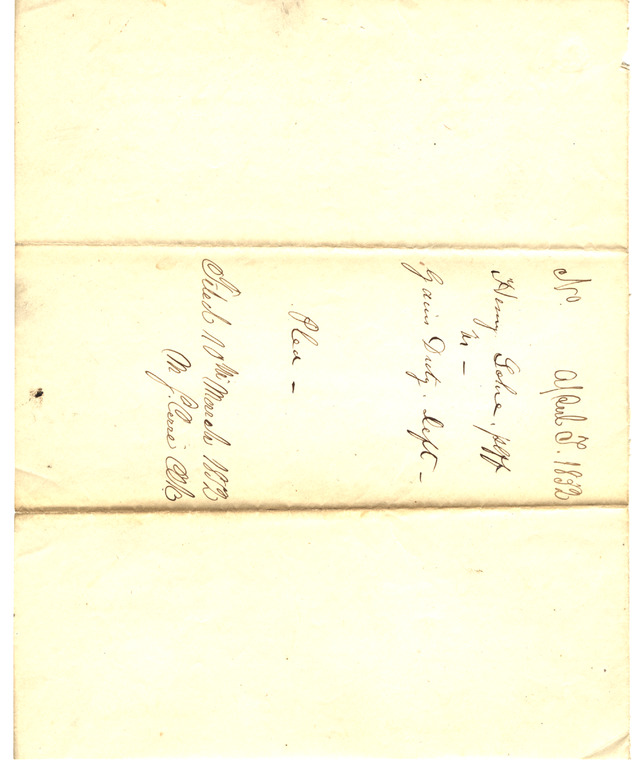 No. April T. 1832
Henry Gohe. plff
vs —
Gains Duty. Deft —
Plea —
Filed 10th March 1832
M. P. Cerré Clk